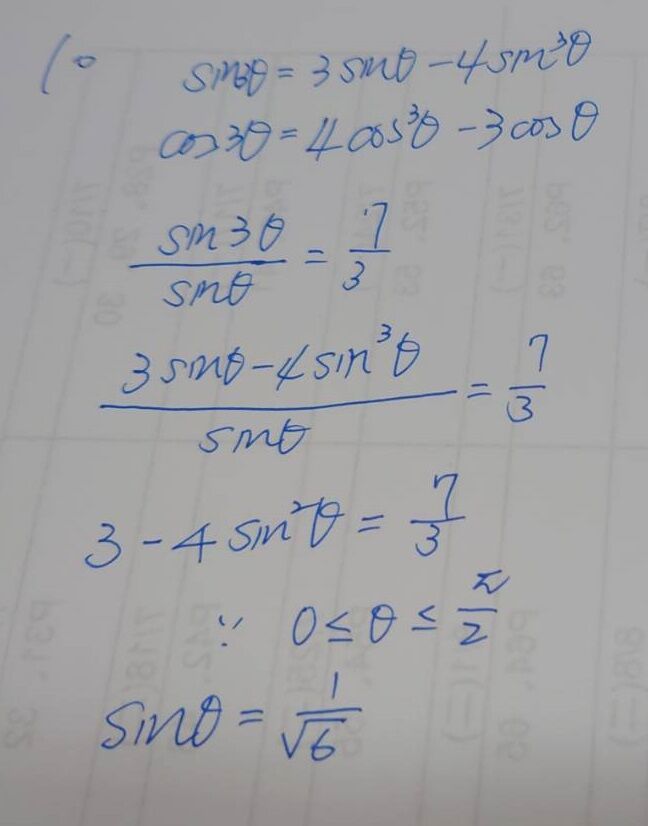 1。 sin3θ = 3sinθ - 4sin³θ
cos3θ = 4cos³θ - 3cosθ
sin3θ / sinθ = 7/3
3sinθ - 4sin³θ / sinθ = 7/3
3 - 4sin²θ = 7/3
∵ 0 ≤ θ ≤ π/2
sinθ = 1/√6